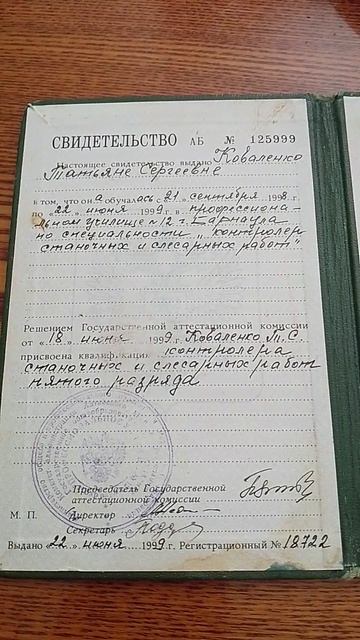 СВИДЕТЕЛЬСТВО АБ № 125999
Настоящее свидетельство выдано Коваленко
Татьяне Сергеевне
в том, что она обучалась с „21„ сентября 1998 г.
по „22„ июня 1999 г. в профессиона-
льном училище №12 г. Барнаула
по специальности „контролер
станочных и слесарных работ"
Решением Государственной аттестационной комиссии
от «18„ июня 1999 г. Коваленко Т.С.
присвоена квалификация контролера
станочных и слесарных работ
пятого разряда
Председатель Государственной
аттестационной комиссии
М. П. Директор
Секретарь
Выдано „22„ июня 1999 г. Регистрационный № 18722